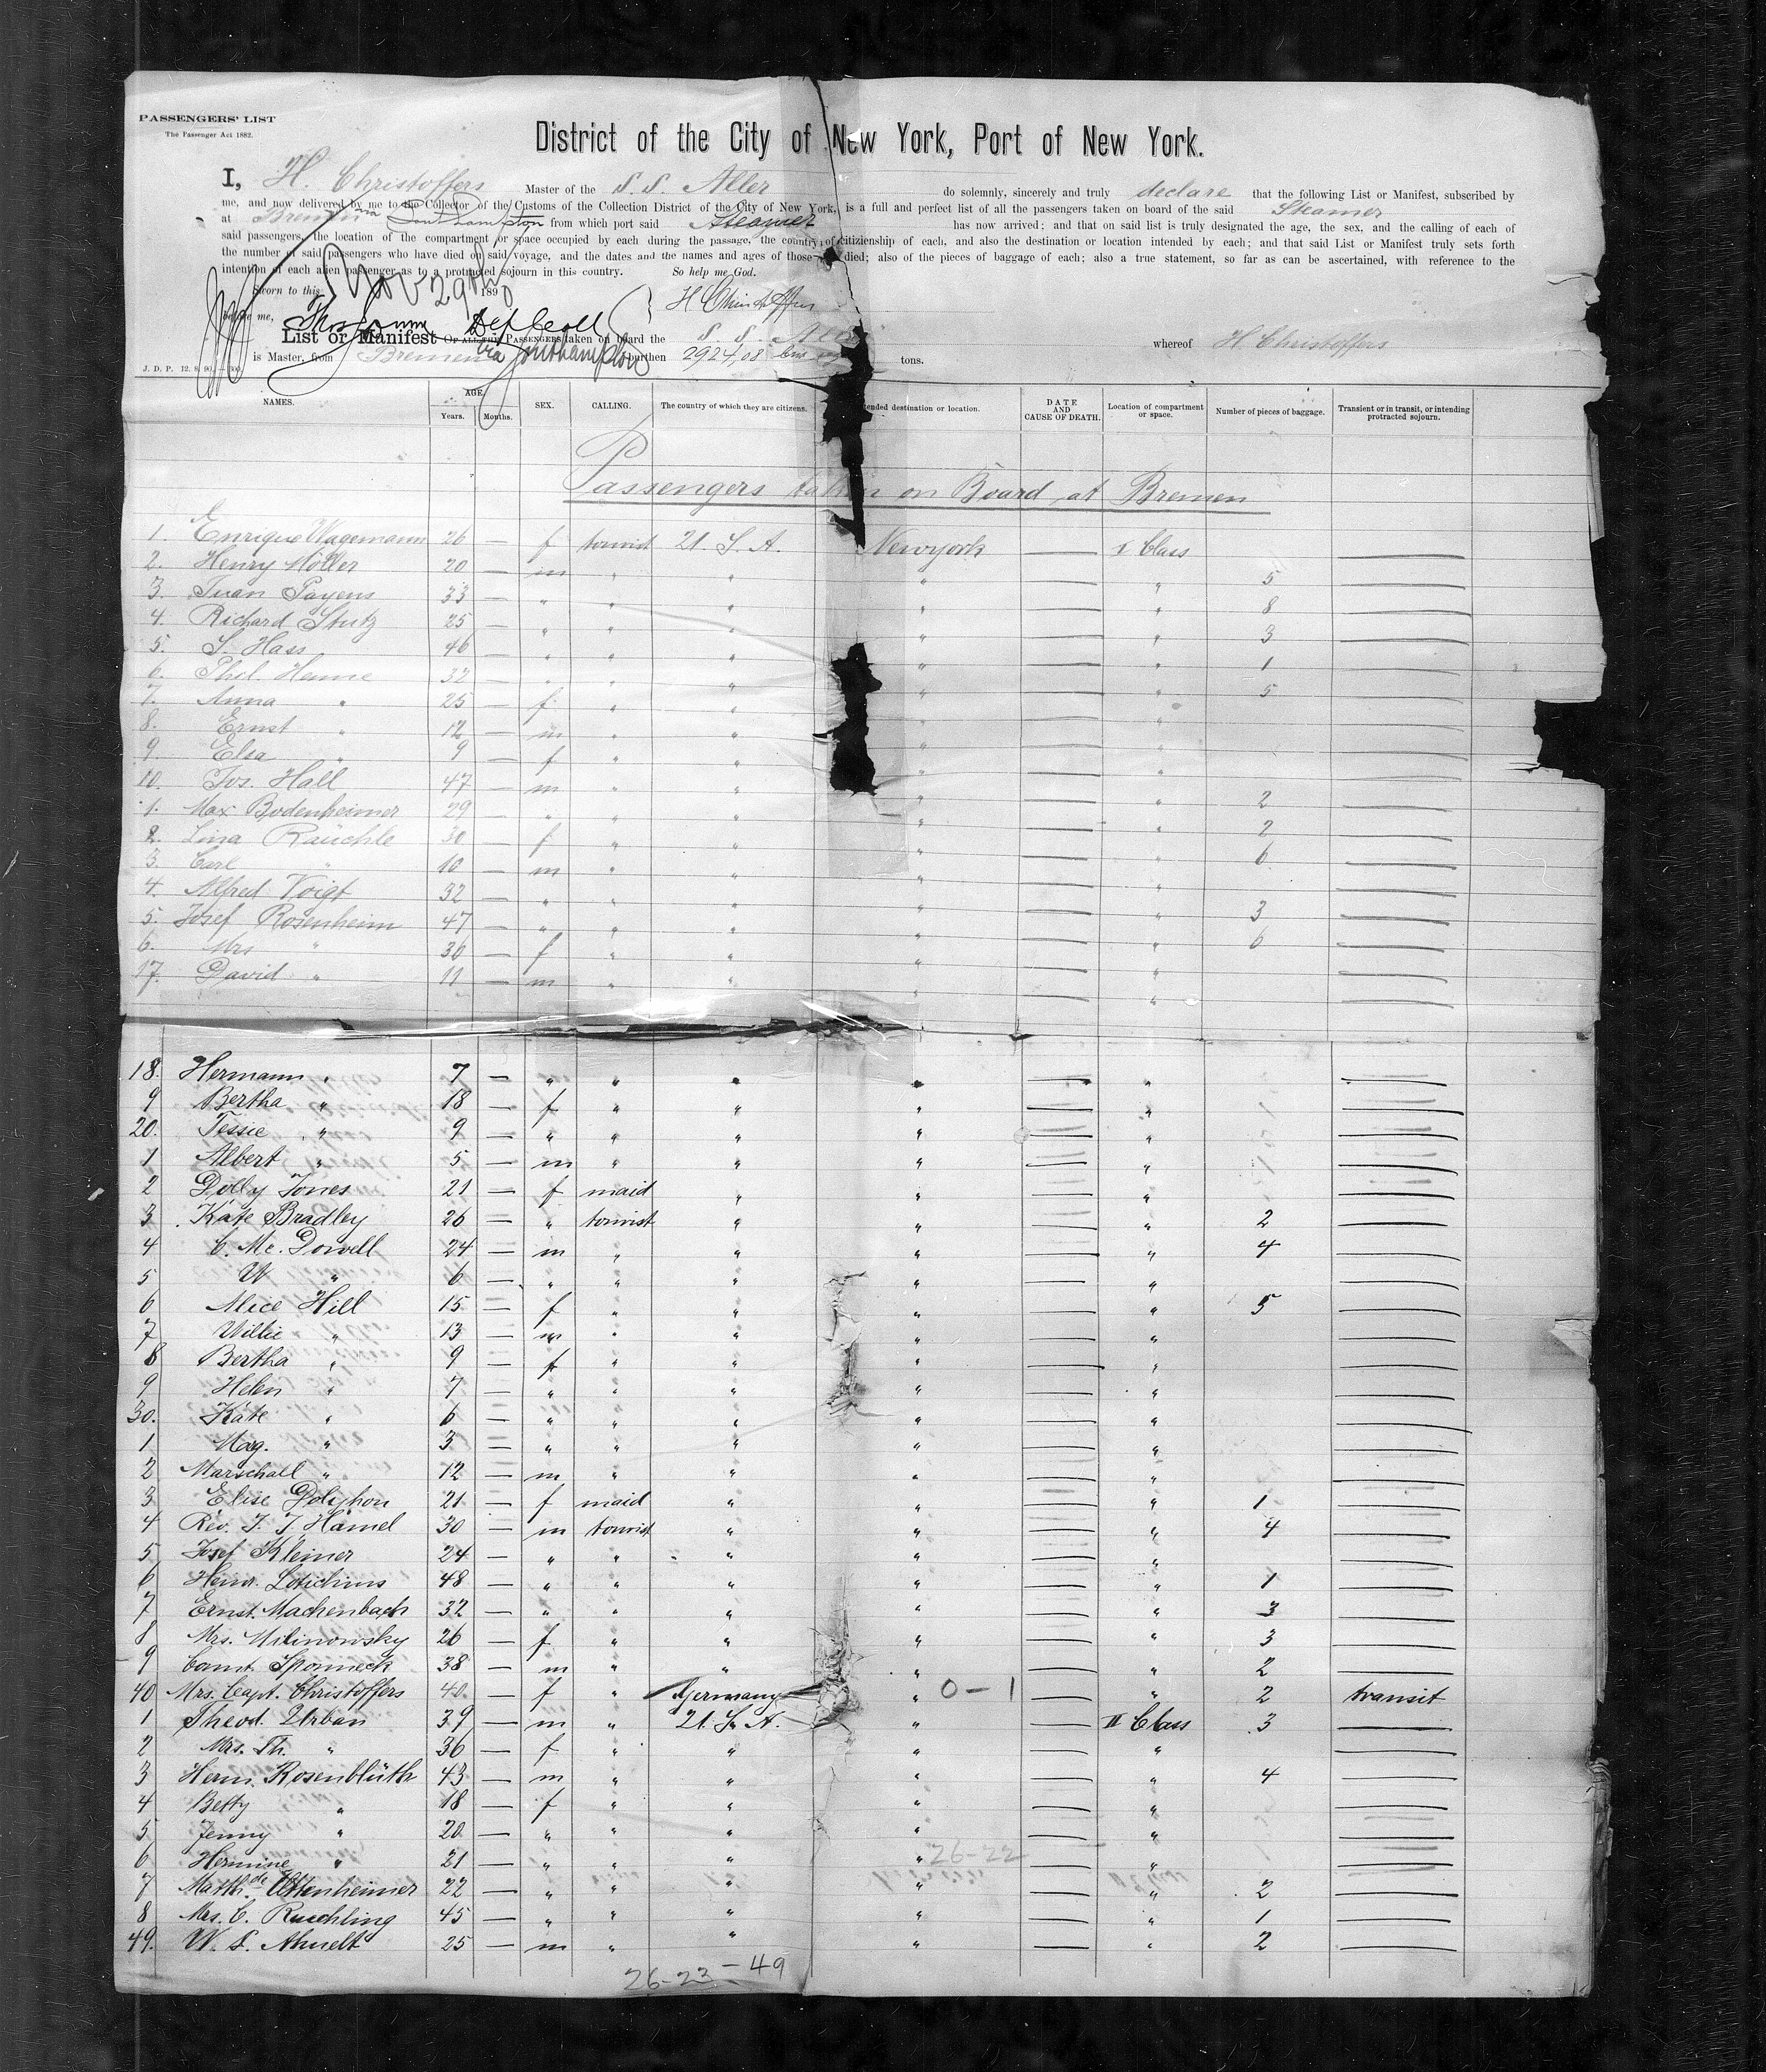 PASSENGERS' LIST
The Passenger Act 1882.
District of the City of New York, Port of New York.
I, H. Christoffers Master of the S. S. Aller do solemnly, sincerely and truly declare that the following List or Manifest, subscribed by
me, and now delivered by me to the Collector of the Customs of the Collection District of the City of New York, is a full and perfect list of all the passengers taken on board of the said Steamer
at Bremen via Southampton from which port said Steamer has now arrived; and that on said list is truly designated the age, the sex, and the calling of each of
said passengers, the location of the compartment or space occupied by each during the passage, the country of citizienship of each, and also the destination or location intended by each; and that said List or Manifest truly sets forth
the number of said passengers who have died on said voyage, and the dates and the names and ages of those died; also of the pieces of baggage of each; also a true statement, so far as can be ascertained, with reference to the
intention of each alien passenger as to a protracted sojourn in this country. So help me God.
Sworn to this Nov 29 189
before me, H Christoffers
List or Manifest OF ALL THE PASSENGERS taken on board the S. S. Aller whereof H. Christoffers
is Master, from Bremen via Southampton burthen 2924,08 tons.
J. D. P. 12. 8. 90.
NAMES. AGE. Years. Months. SEX. CALLING. The country of which they are citizens. ended destination or location. DATE AND CAUSE OF DEATH. Location of compartment or space. Number of pieces of baggage. Transient or in transit, or intending protracted sojourn.
Passengers taken on Board at Bremen
1. Enrique Wagemann 26 — f tourist U. S. A. Newyork — I Class —
2. Henry Möller 20 — m " " " — " 5 —
3. Juan Payens 33 — " " " " — " 8 —
4. Richard Stutz 25 — " " " " — " 3 —
5. S. Hass 46 — " " " " — " 1 —
6. Phil. Henne 32 — " " " " — " 5 —
7. Anna " 25 — f " " " — " —
8. Ernst " 12 — m " " " — " —
9. Elsa " 9 — f " " " — " —
10. Jos. Hall 47 — m " " " — " 2 —
1. Max Bodenheimer 29 — " " " " — " 2 —
2. Lina Räuchle 30 — f " " " — " 6 —
3. Carl " 10 — m " " " — " —
4. Alfred Voigt 32 — " " " " — " 3 —
5. Josef Rosenheim 47 — " " " " — " 6 —
6. Mrs " 36 — f " " " — " —
17. David " 11 — m " " " — " —
18. Hermann " 7 — " " " " — " —
9 Bertha " 18 — f " " " — " —
20. Tessie " 9 — " " " " — " —
1 Albert " 5 — m " " " — " —
2 Dolly Jones 21 — f maid " " — " —
3 Kate Bradley 26 — " tourist " " — " 2 —
4 C. Mc. Dowell 24 — m " " " — " 4 —
5 W " 6 — " " " " — " —
6 Alice Hill 15 — f " " " — " 5 —
7 Willie " 13 — m " " " — " —
8 Bertha " 9 — f " " " — " —
9 Helen " 7 — " " " " — " —
30. Kate " 6 — " " " " — " —
1 Mag. " 3 — " " " " — " —
2 Marschall " 12 — m " " " — " —
3 Elise Polyhon 21 — f maid " " — " 1 —
4 Rev. J. J. Hamel 30 — m tourist " " — " 4 —
5 Josef Kleiner 24 — " " " " — " —
6 Henr. Lotichius 48 — " " " " — " 1 —
7 Ernst. Machenbach 32 — " " " " — " 3 —
8 Mrs. Milinowsky 26 — f " " " — " 3 —
9 Comt. Sponneck 38 — m " " " — " 2 —
40 Mrs. Capt. Christoffers 40. — f " Germany " 0-1 — " 2 transit
1 Theod. Urban 39 — m " U. S. A. " — II Class 3 —
2 Mrs. Th. " 36 — f " " " — " —
3 Herm. Rosenblüth 43 — m " " " — " 4 —
4 Betty " 18 — f " " " — " —
5 Jenny " 20 — " " " " — " —
6 Hermine " 21 — " " " " 26-22 — " —
7 Mathde. Uttenheimer 22 — " " " " — " 2 —
8 Mrs. C. Ruchling 45 — " " " " — " 1 —
49. W. S. Ahnelt 25 — m " " " — " 2 —
26-23-49